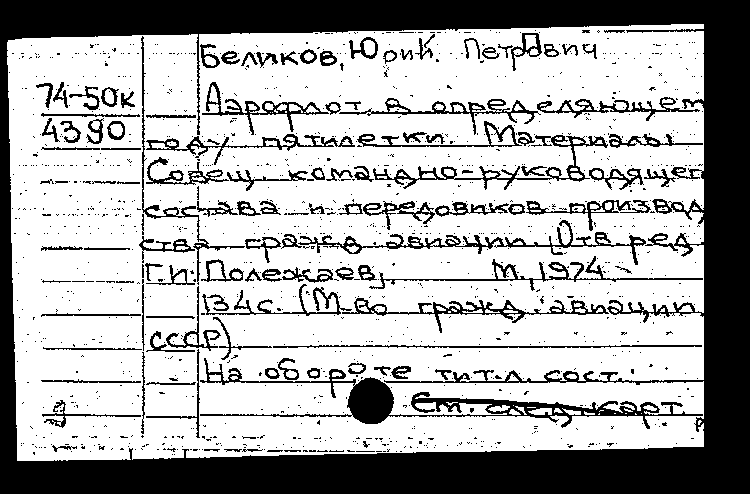 Беликов, Юрий Петрович
74-50к
4390
Аэрофлот в определяющем
году пятилетки. Материалы
Совещ. командно-руководящего
состава и передовиков производ
ства гражд авиации. [Отв ред
Г.И. Полежаев]. М., 1974
134с. (М-во гражд. авиации
СССР).
На обороте тит.л. сост.:
См. след карт